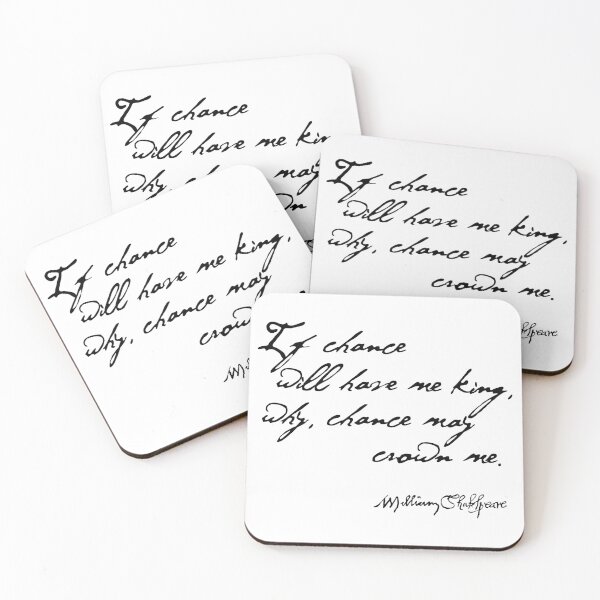 If chance
will have me
why, chance may
If chance
will have me king,
why, chance may
crown me.
If chance
will have me king,
why, chance may
crown
If chance
will have me king,
why, chance may
crown me.
William Shakspeare